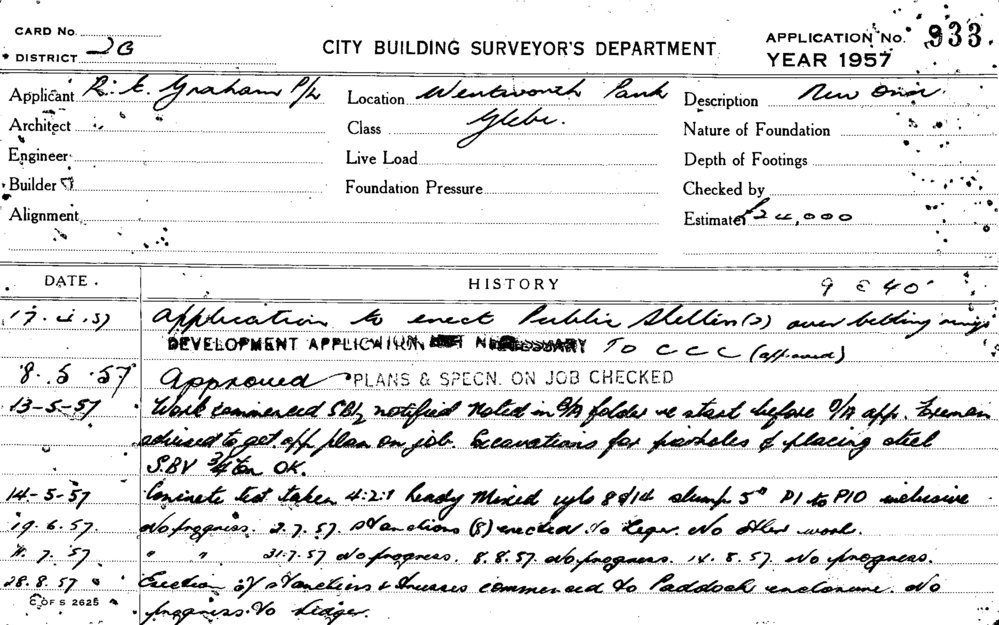 CARD No.
DISTRICT 2G
CITY BUILDING SURVEYOR'S DEPARTMENT
APPLICATION No. 933.
YEAR 1957
Applicant R. E. Graham P/L
Location Wentworth Park
Glebe.
Description
Architect
Class
Nature of Foundation
Engineer
Live Load
Depth of Footings
Builder
Foundation Pressure
Checked by
Alignment
Estimate £24,000
DATE.
HISTORY
9 c 40
17.4.57 Application to erect Public Shelters (2) over betting rings
DEVELOPMENT APPLICATION NOT NECESSARY To CCC (approved)
8.5.57 Approved PLANS & SPECN. ON JOB CHECKED
13-5-57 Work commenced notified Noted in folder re start before app. Foreman
advised to get app plan on job. Excavations for & placing steel
SBV 3/4 ton OK.
14-5-57 Concrete test taken 4:2:1 Ready Mixed cyls 8 & 14 slump 5" P1 to P10 inclusive
19.6.57. No progress. 2.7.57. Stanctions (8) erected to Leger. No other work.
7.57 " " 31.7.57 No progress. 8.8.57. No progress. 14.8.57 No progress.
28.8.57 Erection of Stanctions & trusses commenced to Paddock enclosure. No
progress to Ledger.
C OF S 2625